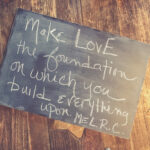 MAKE LOVE
the foundation
on which you
build everything
upon